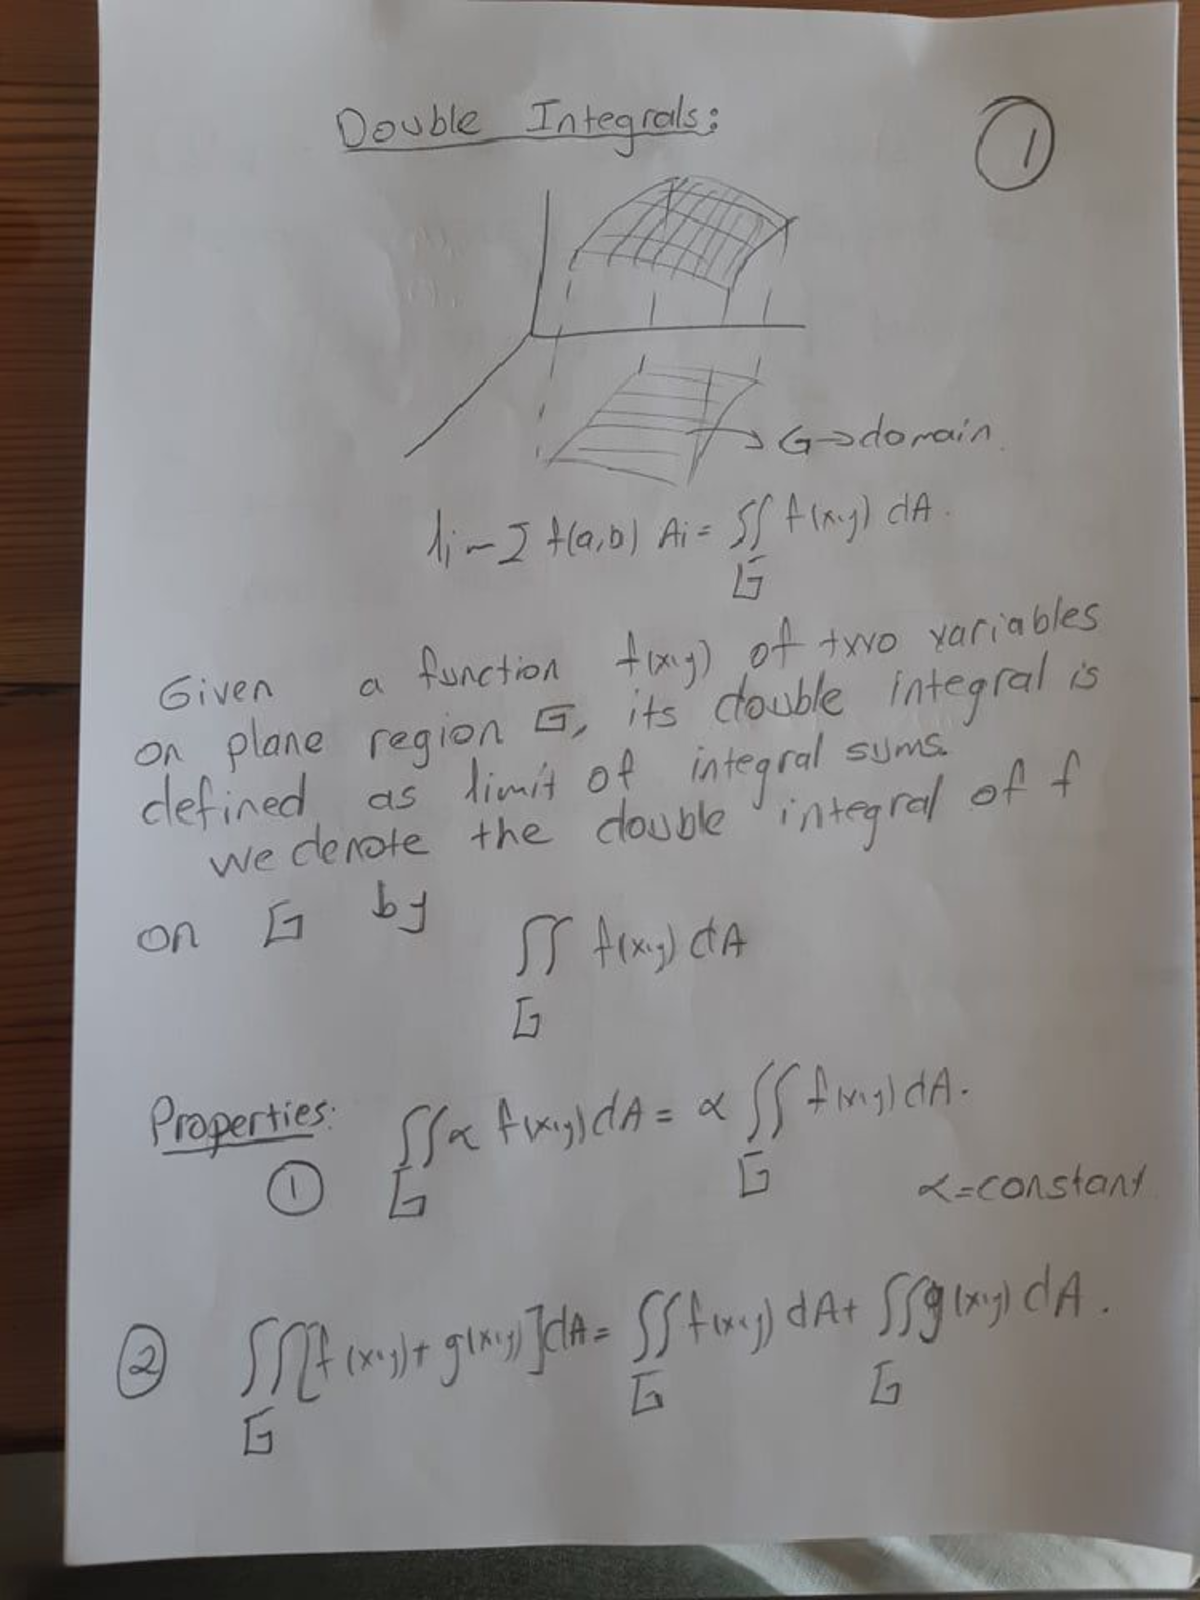 Double Integrals:
①
G→domain
lim Σ f(a,b) Ai = ∬ f(x,y) dA.
G
Given a function f(x,y) of two variables
on plane region G, its double integral is
defined as limit of integral sums.
we denote the double integral of f
on G by
∬ f(x,y) dA
G
Properties:
① ∬ α f(x,y) dA = α ∬ f(x,y) dA.
G G
α=constant
② ∬ [f(x,y) + g(x,y)] dA = ∬ f(x,y) dA + ∬ g(x,y) dA.
G G G